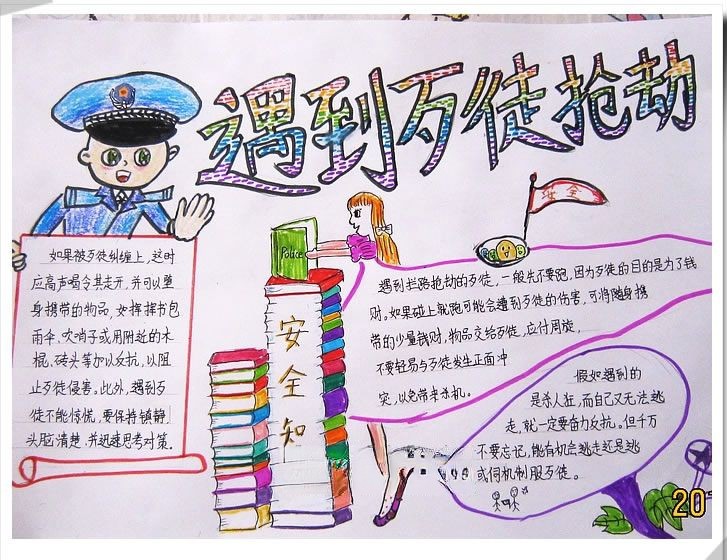 遇到歹徒抢劫
安全
Police
安全知
如果被歹徒纠缠上,这时
应高声喝令其走开,并可以随
身携带的物品,如挥挥书包
雨伞、吹哨子或用附近的木
棍、砖头等加以反抗,以阻
止歹徒侵害。此外,遇到歹
徒不能惊慌,要保持镇静,
头脑清楚,并迅速思考对策.
遇到拦路抢劫的歹徒,一般先不要跑,因为歹徒的目的是为了钱
财。如果碰上就跑可能会遭到歹徒的伤害,可将随身携
带的少量钱财,物品交给歹徒,应付周旋,
不要轻易与歹徒发生正面冲
突,以免带来杀机。
假如遇到的
是杀人狂,而自己又无法逃
走,就一定要奋力反抗。但千万
不要忘记,能有机会逃走还是逃
或伺机制服歹徒。
20